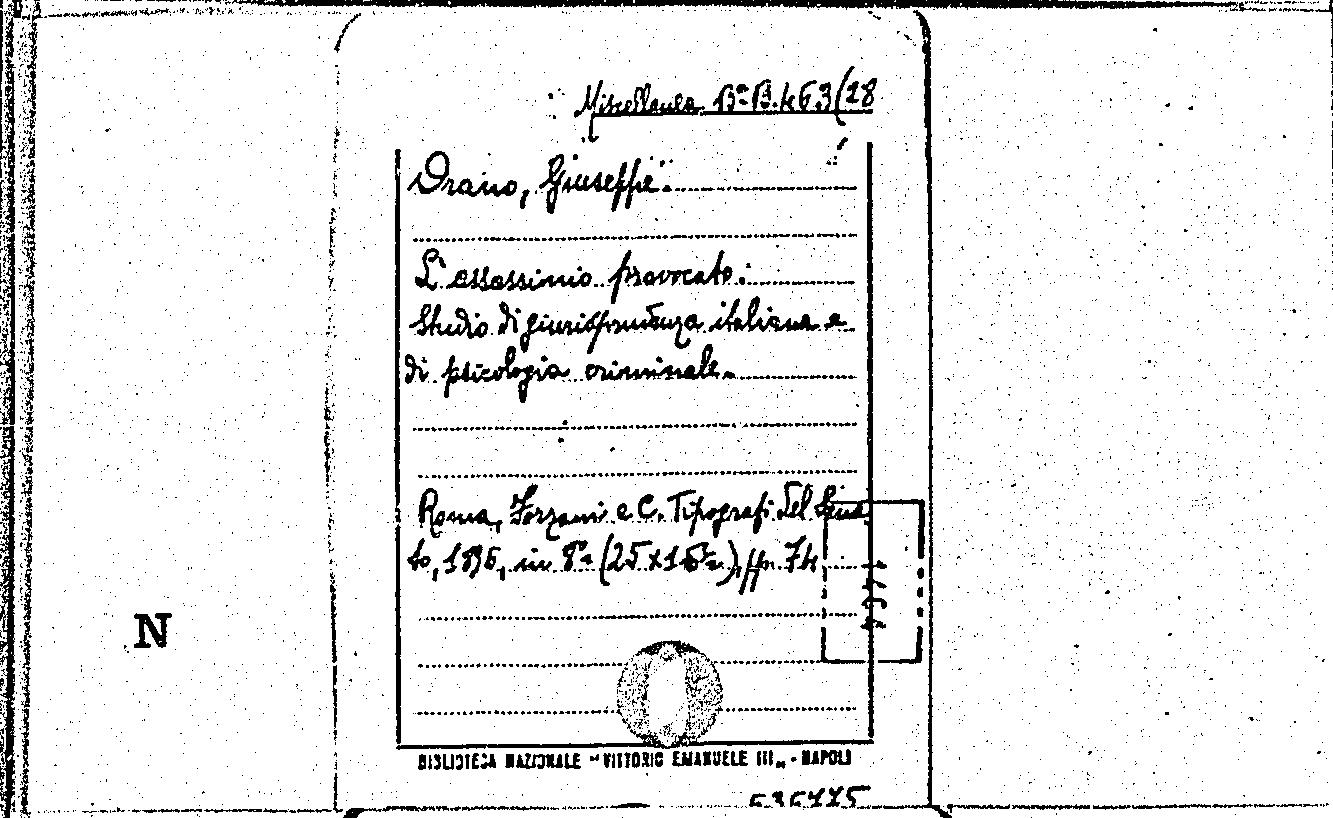 Miscellanea Bª B. 463(28
Orano, Giuseppe.
L'assassinio provocato.
Studio di giurisprudenza italiana e
di psicologia criminale.
Roma, Forzani e C. Tipografi del Sena
to, 1896, in 8º (25 x 16½), pp. 74
N
BIBLIOTECA NAZIONALE "VITTORIO EMANUELE III„ - NAPOLI